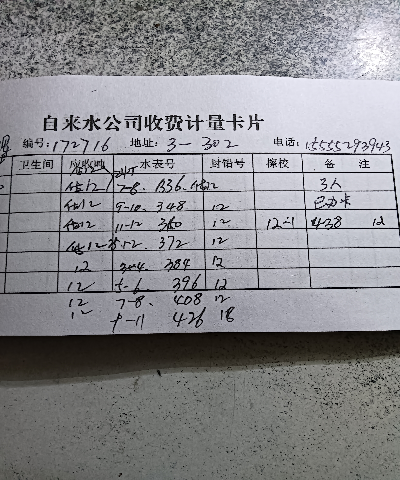 自来水公司收费计量卡片
编号:172716 地址: 3-302 电话: 15555293943
卫生间 应收吨 水表号 封铅号 检校 备注
估12 7-8. 336. 估12 3人
估12 9-10. 348 12 已办卡
估12 11-12 360 12 12-1 438 12
估12 372 12
12 3-4 384 12
12 5-6. 396 12
12 7-8. 408 12
12 9-11 426 18